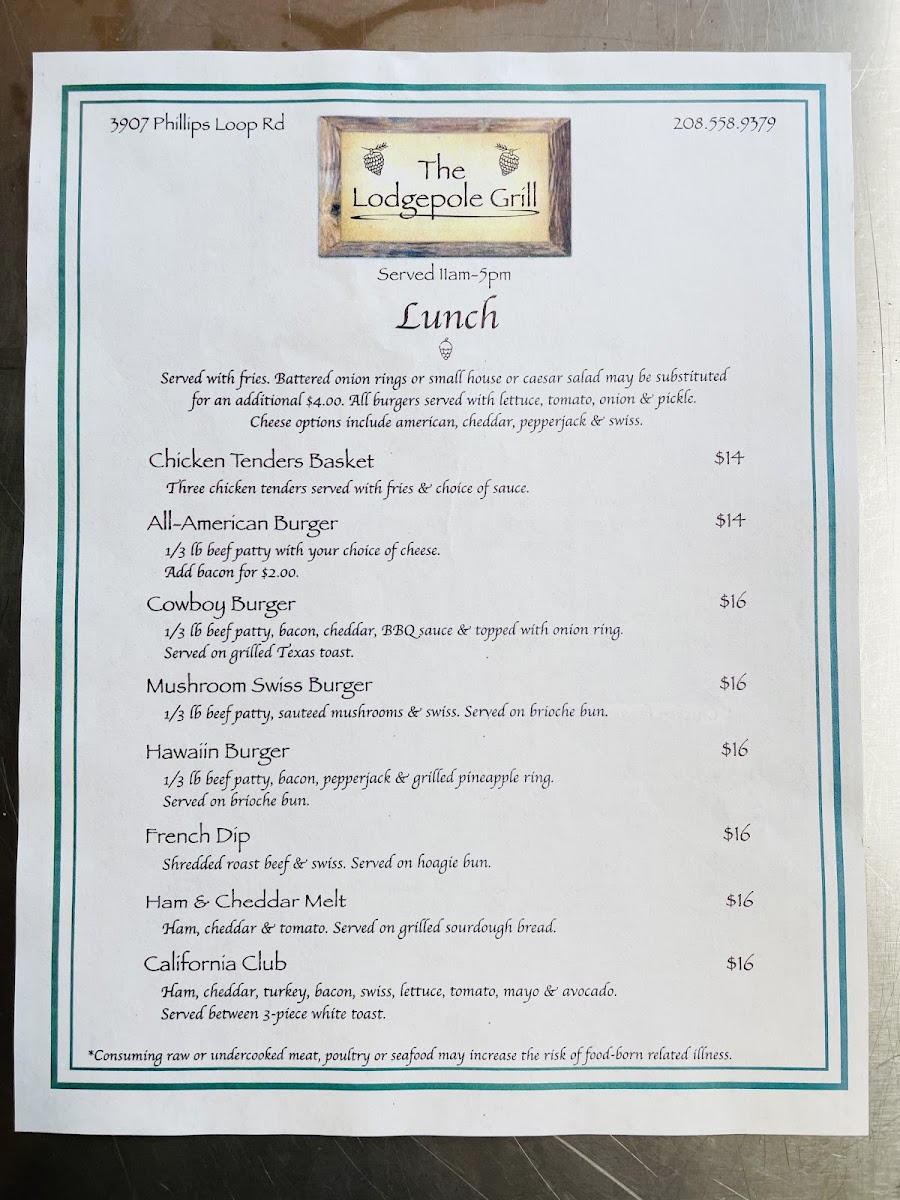 3907 Phillips Loop Rd
208.558.9379
The
Lodgepole Grill
Served 11am-5pm
Lunch
Served with fries. Battered onion rings or small house or caesar salad may be substituted
for an additional $4.00. All burgers served with lettuce, tomato, onion & pickle.
Cheese options include american, cheddar, pepperjack & swiss.
Chicken Tenders Basket $14
Three chicken tenders served with fries & choice of sauce.
All-American Burger $14
1/3 lb beef patty with your choice of cheese.
Add bacon for $2.00.
Cowboy Burger $16
1/3 lb beef patty, bacon, cheddar, BBQ sauce & topped with onion ring.
Served on grilled Texas toast.
Mushroom Swiss Burger $16
1/3 lb beef patty, sauteed mushrooms & swiss. Served on brioche bun.
Hawaiin Burger $16
1/3 lb beef patty, bacon, pepperjack & grilled pineapple ring.
Served on brioche bun.
French Dip $16
Shredded roast beef & swiss. Served on hoagie bun.
Ham & Cheddar Melt $16
Ham, cheddar & tomato. Served on grilled sourdough bread.
California Club $16
Ham, cheddar, turkey, bacon, swiss, lettuce, tomato, mayo & avocado.
Served between 3-piece white toast.
*Consuming raw or undercooked meat, poultry or seafood may increase the risk of food-born related illness.